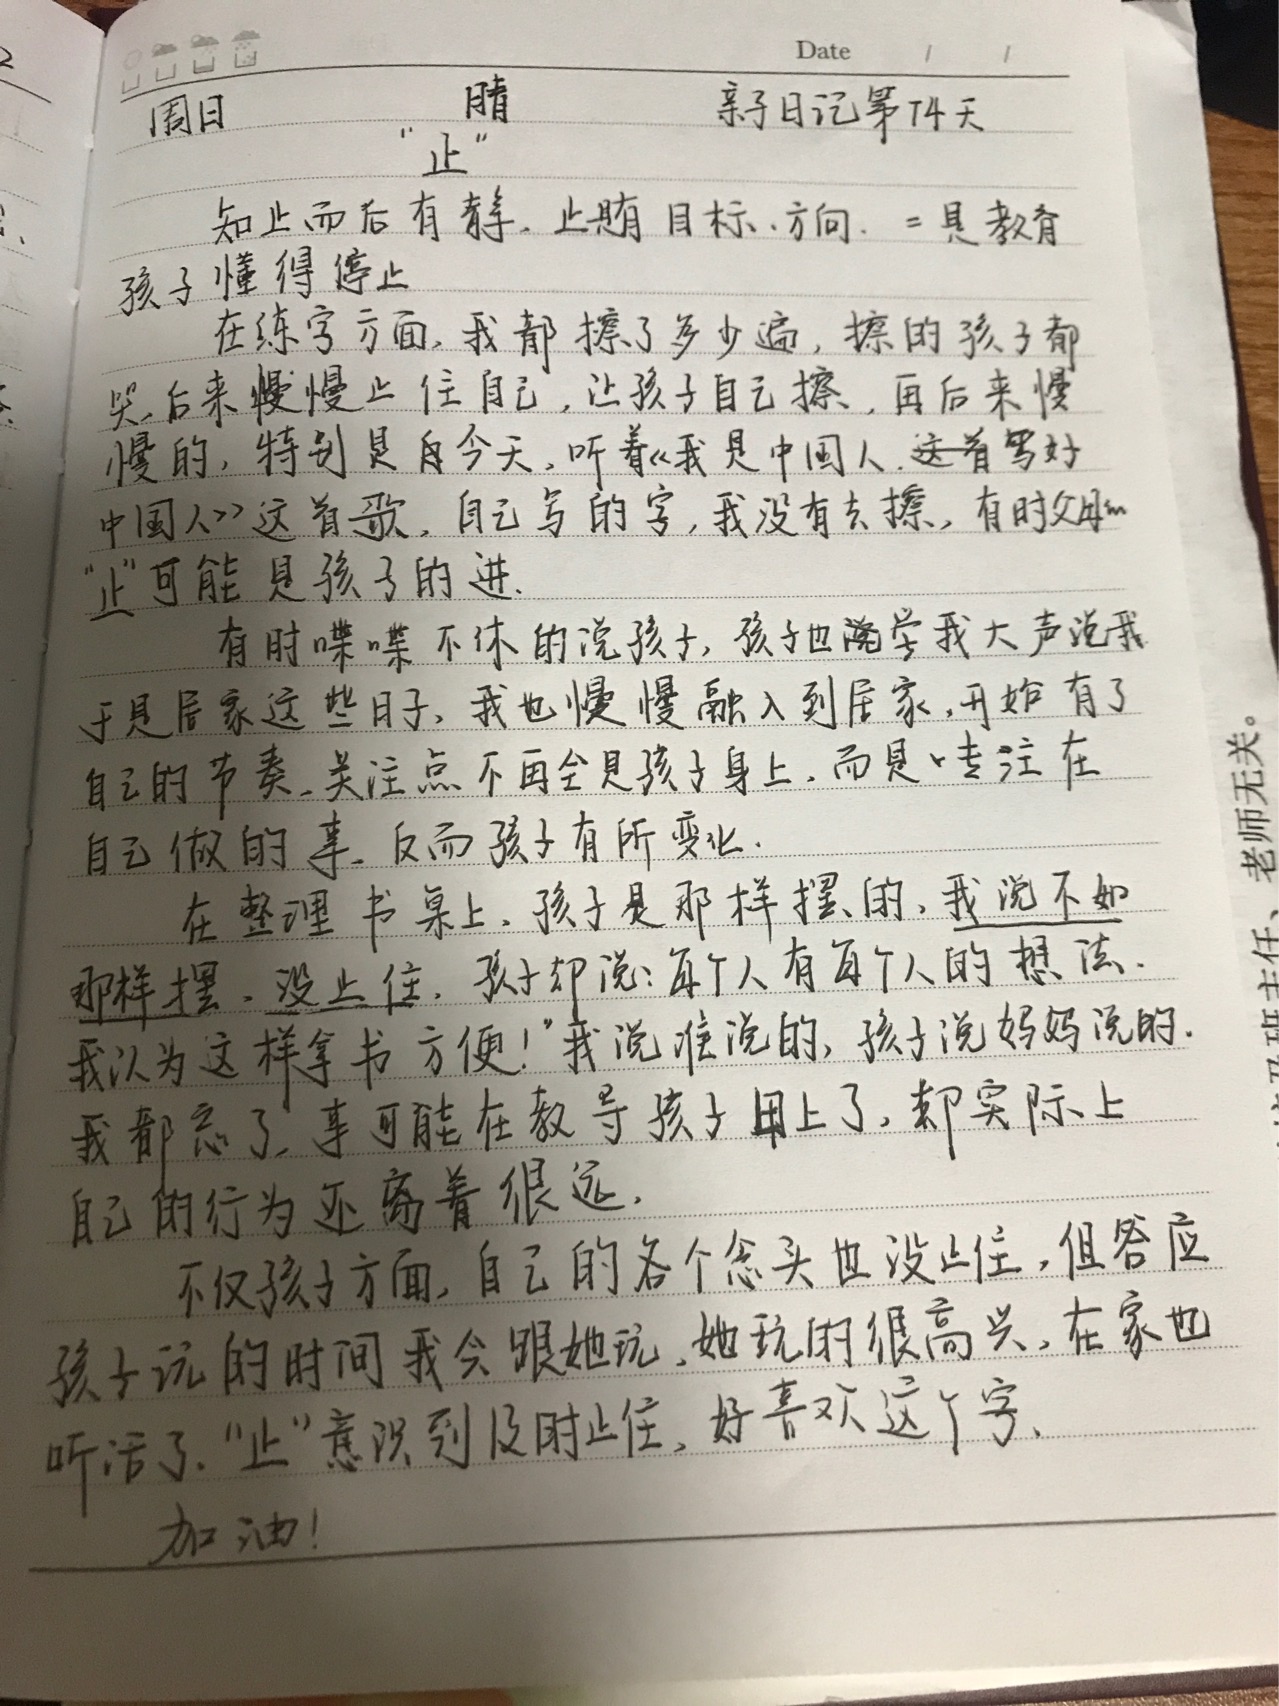 Date / /
周日 晴 亲子日记第74天
“止”
知止而后有静、止是有目标、方向. 二是教育
孩子懂得停止
在练字方面,我都擦了多少遍,擦的孩子都
哭,后来慢慢止住自己,让孩子自己擦,再后来慢
慢的,特别是今天,听着《我是中国人.这首写好
中国人》这首歌,自己写的字,我没有去擦,有时父母的
“止”可能是孩子的进.
有时喋喋不休的说孩子,孩子也学我大声说我
于是居家这些日子,我也慢慢融入到居家,开始有了
自己的节奏、关注点不再全是孩子身上、而是专注在
自己做的事、反而孩子有所变化.
在整理书桌上、孩子是那样摆的,我说不如
那样摆、没止住,孩子却说:每个人有每个人的想法.
我认为这样拿书方便!”我说谁说的,孩子说妈妈说的.
我都忘了,事可能在教导孩子用上了,却实际上
自己的行为还离着很远.
不仅孩子方面,自己的各个念头也没止住,但答应
孩子玩的时间我会跟她玩,她玩的很高兴,在家也
听话了.“止”意识到及时止住,好喜欢这个字、
加油!
老师无关。
班主任、